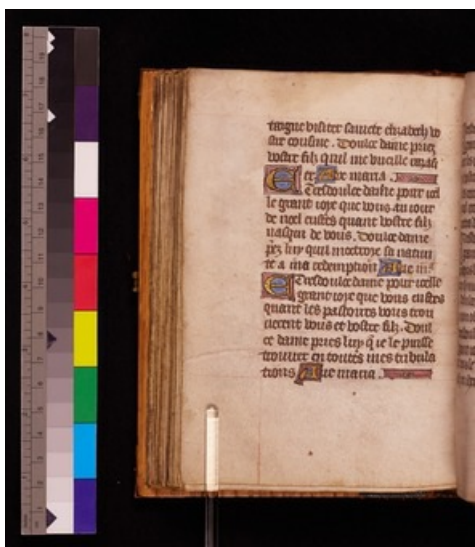 taigne visiter saincte elizabeth vo
stre cousine. Doulce dame priez
vostre filz quil me vueille
Ave maria.
E tresdoulce dame pour icel
le grant ioye que vous au iour
de noel eustes quant vostre filz
nasqui de vous. Doulce dame
pez luy quil mottroye sa natiui
te a ma redemption Aue ma
E Tresdoulce dame pour icelle
grant ioye que vous eustes
quant les pastoures vous trou
uerent vous et vostre filz. Doul
ce dame pries luy q ie le puisse
trouuer en toutes mes tribula
tions Aue maria.